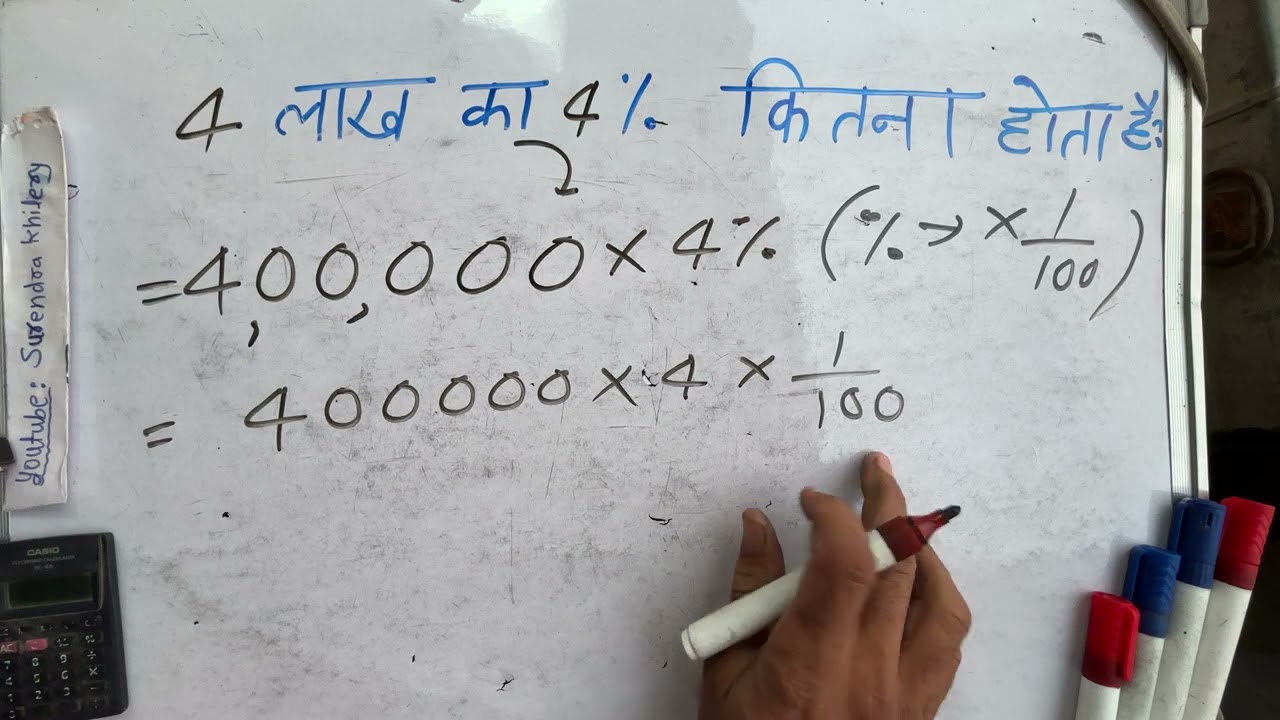 4 लाख का 4% कितना होता है:
=4,00,000×4% (%→×1/100)
= 400000×4×1/100
Youtube: Surendra Khilery
CASIO
AC